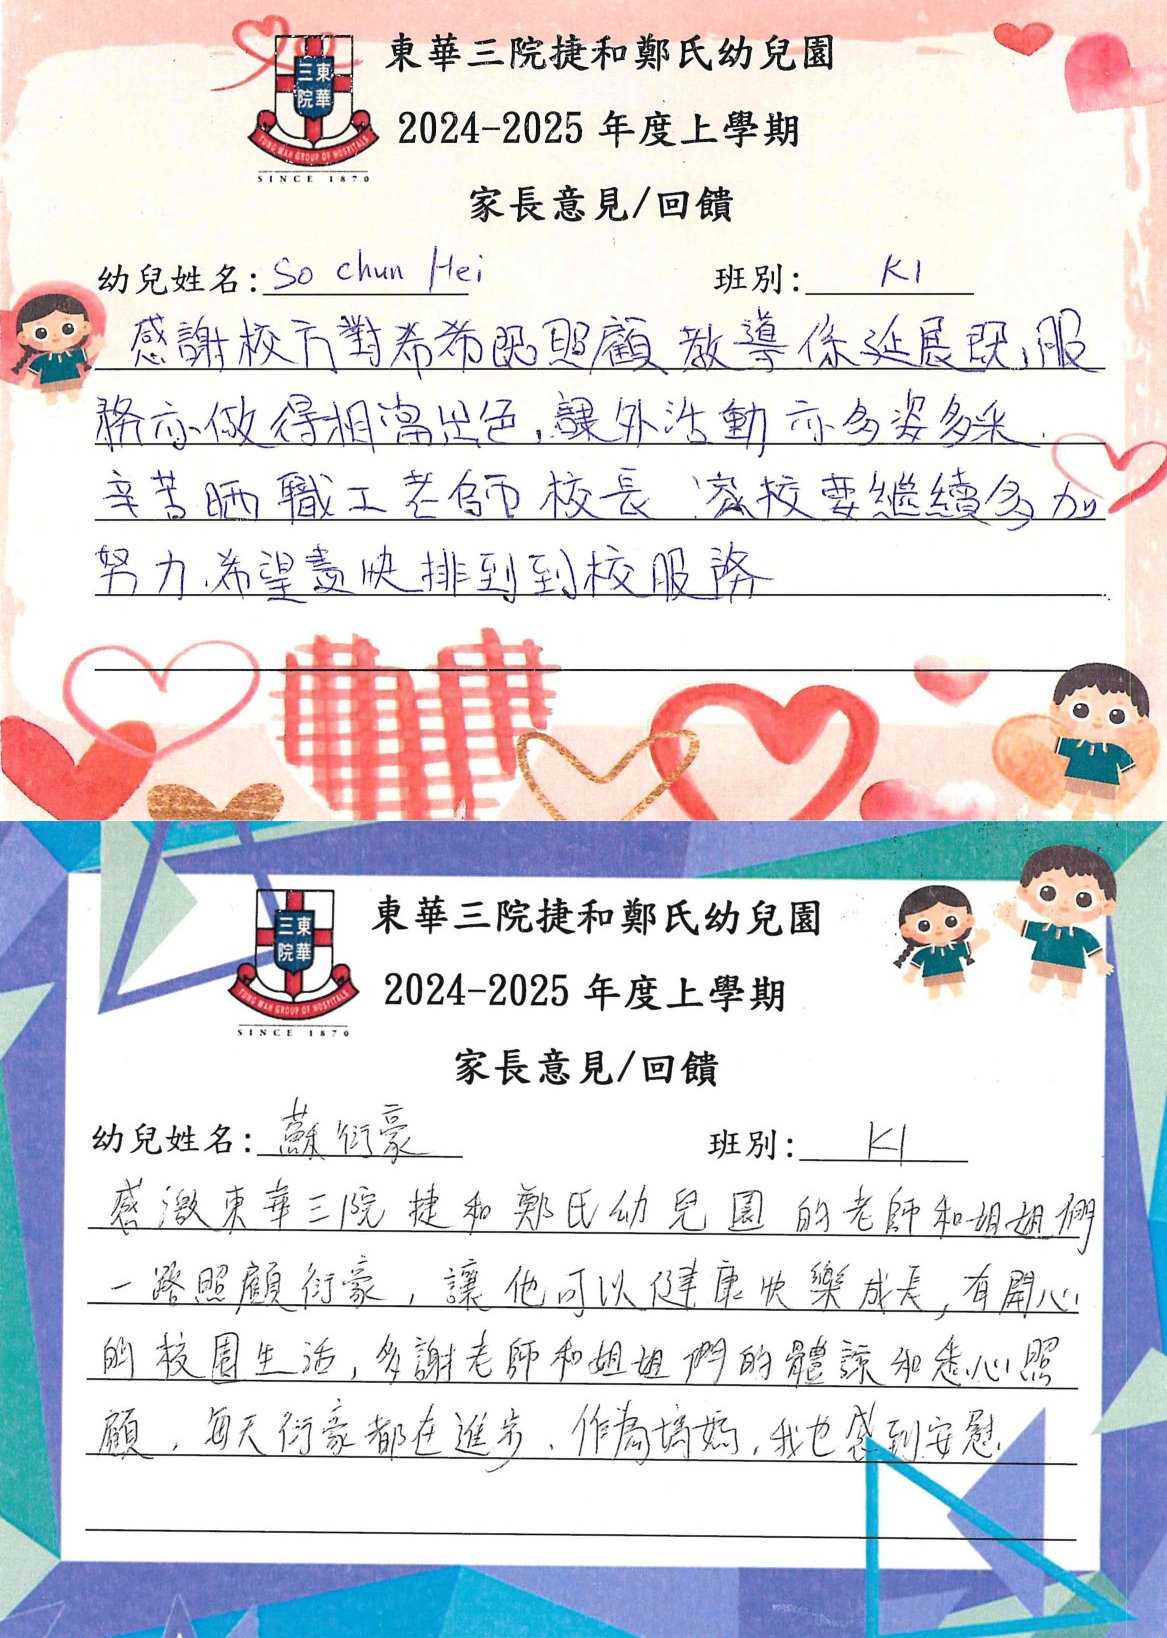 東華三院
TUNG WAH GROUP OF HOSPITALS
SINCE 1870
東華三院捷和鄭氏幼兒園
2024-2025 年度上學期
家長意見/回饋
幼兒姓名: So chun Hei 班別: K1
感謝校方對希希既照顧教導係延展既,服
務亦做得相當出色,課外活動亦多姿多采.
辛苦晒職工老師校長 校要繼續多加
努力.希望盡快排到到校服務
東華三院
TUNG WAH GROUP OF HOSPITALS
SINCE 1870
東華三院捷和鄭氏幼兒園
2024-2025 年度上學期
家長意見/回饋
幼兒姓名: 蘇衍豪 班別: K1
感激東華三院捷和鄭氏幼兒園的老師和姐姐們
一路照顧衍豪,讓他可以健康快樂成長,有開心
的校園生活,多謝老師和姐姐們的體諒和悉心照
顧,每天衍豪都在進步.作為媽媽,我也感到安慰.